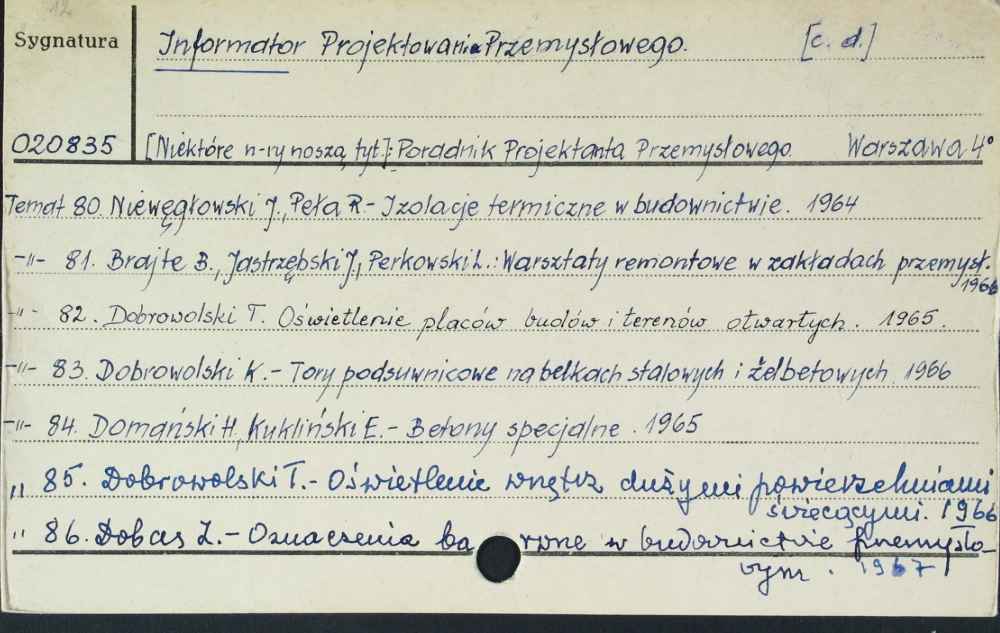 12
Sygnatura
Informator Projektowania Przemysłowego. [c. d.]
020835 [Niektóre n-ry noszą tyt.]: Poradnik Projektanta Przemysłowego. Warszawa 4°
Temat 80. Niewęgłowski J., Peła R. - Izolacje termiczne w budownictwie. 1964
-"- 81. Brajte B., Jastrzębski J., Perkowski L.: Warsztaty remontowe w zakładach przemysł.
1966
-"- 82. Dobrowolski T. Oświetlenie placów budów i terenów otwartych. 1965.
-"- 83. Dobrowolski K. - Tory podsuwnicowe na belkach stalowych i żelbetowych 1966
-"- 84. Domański H, Kukliński E. - Betony specjalne. 1965
" 85. Dobrowolski T. - Oświetlenie wnętrz dużymi powierzchniami
świecącymi. 1966
" 86. Dobas Z. - Oznaczenia ba rwne w budownictwie przemysło-
wym. 1967